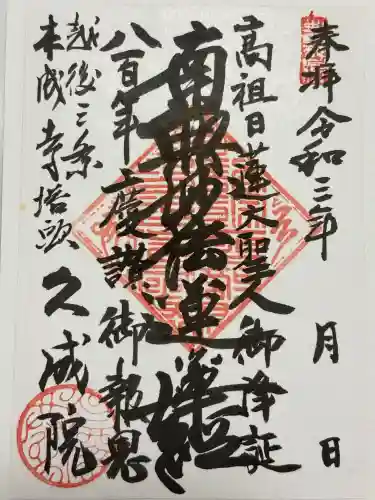 奉拝 令和三年 月 日
高祖日蓮大聖人御降誕
南無妙法蓮華経
八百年慶讃 御報恩
越後三条
本成寺塔頭 久成院